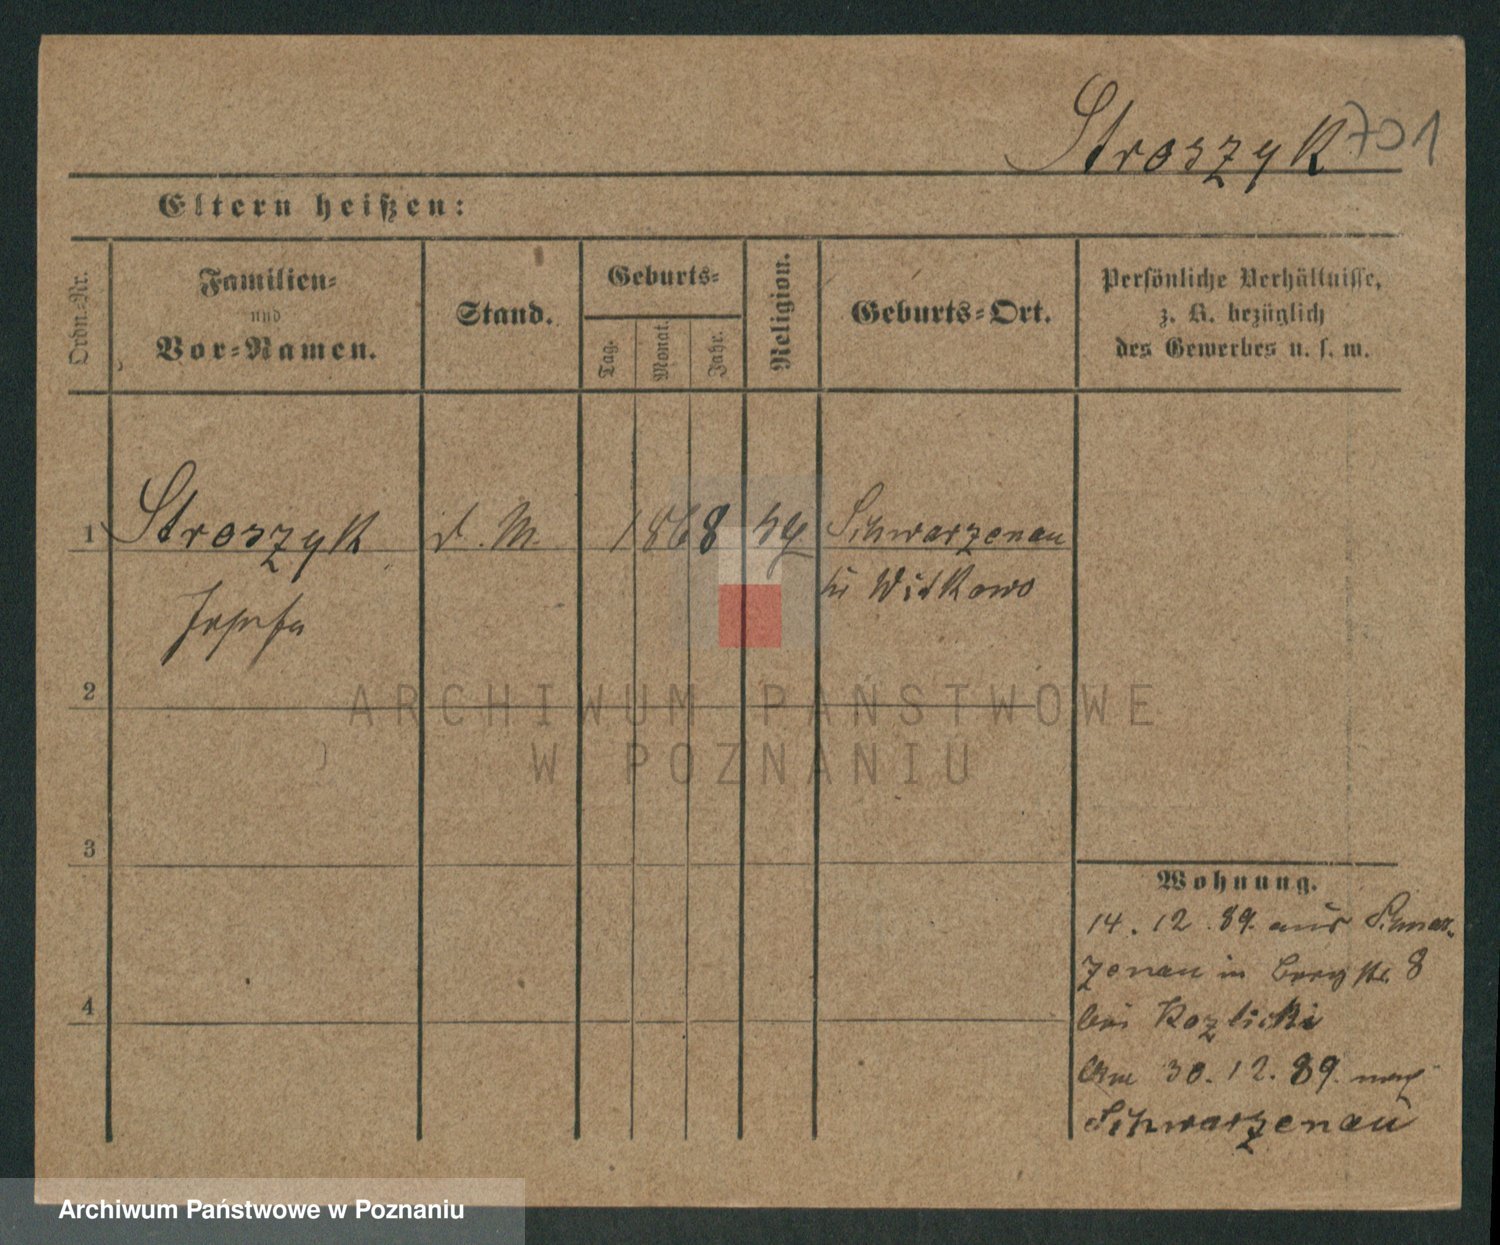 Stroszyk 701
Eltern heißen:
Ordn.-Nr.
Familien-
und
Vor-Namen.
Stand.
Geburts-
Tag.
Monat.
Jahr.
Religion.
Geburts-Ort.
Persönliche Verhältnisse,
z. B. bezüglich
des Gewerbes u. s. w.
1 Stroszyk d. M. 1868 Schwarzenau
Josefa Witkowo
2
3
4
Wohnung.
14. 12. 89. aus Schwar-
zenau in Bergstr. 8
bei Kozlicki
Am 30. 12. 89. nach
Schwarzenau
ARCHIWUM PAŃSTWOWE
W POZNANIU
Archiwum Państwowe w Poznaniu